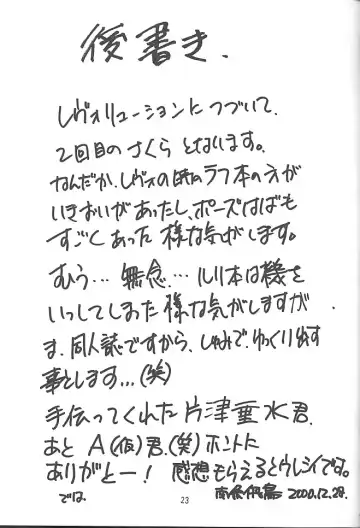 後書き.
レヴォリューションにつづいて、
2回目のさくらとなります。
なんだか、レヴォの時のラフ本のえが
いきおいがあったし、ポーズはばも
すごくあった様な気がします。
むう…無念…ルリ本は機を
いっしてしまった様な気がしますが
ま、同人誌ですから、しゅみで、ゆっくり出す
事とします…(笑)
手伝ってくれた片津垂水君.
あと A(仮)君.(笑)ホントに
ありがとー! 感想もらえるとウレシイです。
では 2000.12.28.
23